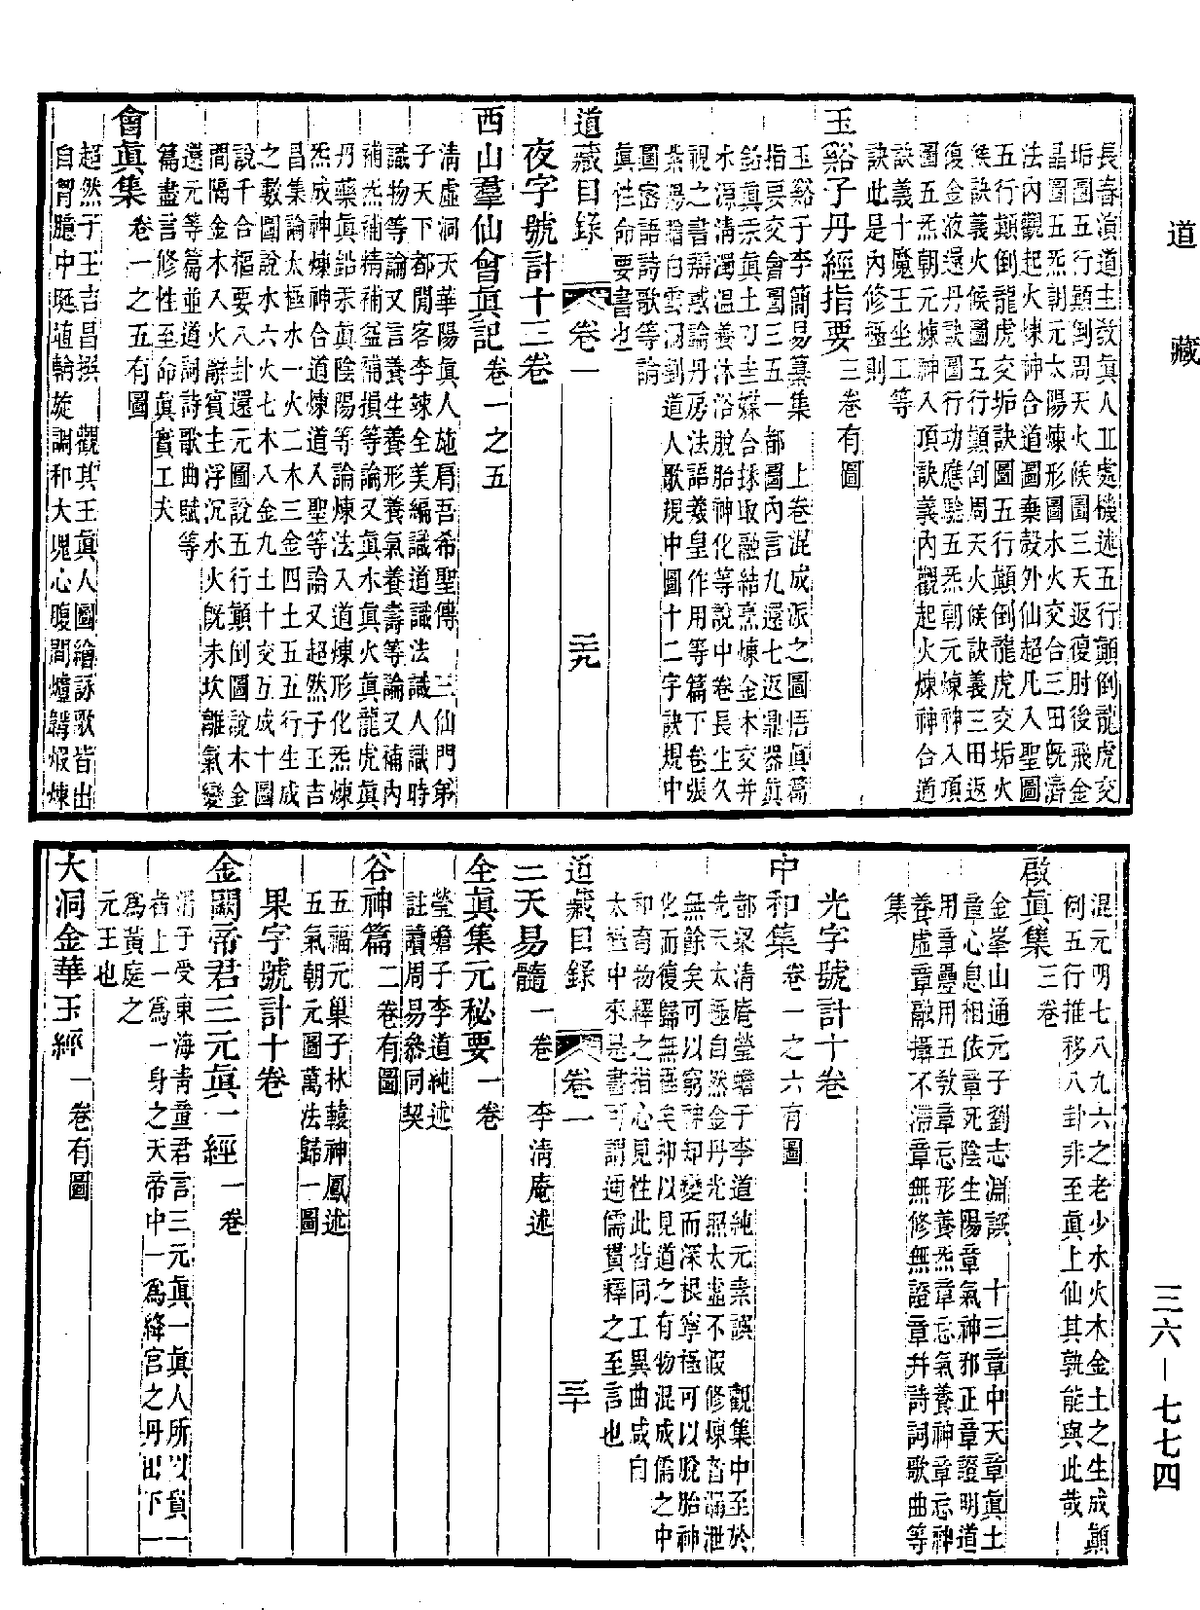 道藏
三六—七七四
長春演道主教眞人丘處機述五行顚倒龍虎交
垢圖五行顚倒周天火候圖三天返復肘後飛金
晶圖五炁朝元太陽煉形圖水火交合三田旣濟
法內觀起火煉神合道圖棄殼外仙超凡入聖圖
五行顚倒龍虎交垢訣圖五行顚倒龍虎交垢火
候訣義火候圖五行顚倒周天火候訣義三田返
復金液還丹訣圖行功應驗五炁朝元煉神入頂
圖五炁朝元煉神入頂訣義內觀起火煉神合道
訣義十魔王坐工等
訣此是內修極則
玉谿子丹經指要三卷有圖
玉谿子李簡易纂集　上卷混成派之圖悟眞篇
指要交會圖三五一都圖內言九還七返鼎器眞
鉛眞汞眞土刀圭媒合採取融結烹煉金木交并
水源淸濁溫養沐浴脫胎神化等說中卷長生久
視之書辯惑論丹房法語羲皇作用等篇下卷張
紫陽贈白雲洞劉道人歌規中圖十二字訣規中
圖密語詩歌等論
眞性命要書也
道藏目錄　卷一　二十九
夜字號計十三卷
西山羣仙會眞記卷一之五
淸虛洞天華陽眞人施肩吾希聖傳　三仙門弟
子天下都閒客李竦全美編識道識法識人識時
識物等論又言養生養形養氣養壽等論又補內
補炁補精補益補損等論又眞水眞火眞龍虎眞
丹藥眞鉛汞眞陰陽等論煉法入道煉形化炁煉
炁成神煉神合道煉道入聖等論又超然子王吉
昌集論太極水一火二木三金四土五五行生成
之數圖說水六火七木八金九土十交互成十圖
說千合樞要八卦還元圖說五行顚倒圖說木金
間隔金木入火辭賓主浮沉水火旣未坎離氣變
還元等篇並道詞詩歌曲賦等
篇盡言修性至命眞實工夫
會眞集卷一之五有圖
超然子王吉昌撰　觀其王眞人圖繪詠歌皆出
自胷臆中埏埴斡旋調和大塊心腹間爐韛煆煉
混元明七八九六之老少水火木金土之生成顚
倒五行推移八卦非至眞上仙其孰能與此哉
啟眞集三卷
金峯山通元子劉志淵譔　十三章中天章眞土
章心息相依章死陰生陽章氣神邪正章證明道
用章疊用五教章忘形養炁章忘氣養神章忘神
養虛章融攝不滯章無修無證章幷詩詞歌曲等
集
光字號計十卷
中和集卷一之六有圖
都梁淸庵瑩蟾子李道純元素譔　觀集中至於
先天太極自然金丹光照太虛不假修煉者漏泄
無餘矣可以窮神知變而深根寧極可以脫胎神
化而復歸無極矣抑以見道之有物混成儒之中
和育物釋之指心見性此皆同工異曲咸自
太極中來是書可謂通儒貫釋之至言也
道藏目錄　卷一　三十
三天易髓一卷　李淸庵述
全眞集元秘要一卷
瑩蟾子李道純述
註讀周易參同契
谷神篇二卷有圖
五福元巢子林轅神鳳述
五氣朝元圖萬法歸一圖
果字號計十卷
金闕帝君三元眞一經一卷
涓子受東海靑童君言三元眞一眞人所以貫一
者上一爲一身之天帝中一爲絳宮之丹皇下一
爲黃庭之
元王也
大洞金華玉經一卷有圖